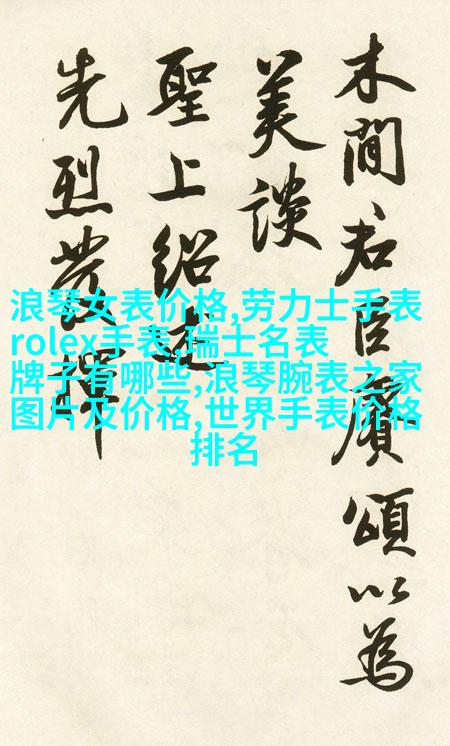 木間君臣賡頌以為
美談
聖上紹述
先烈發揮
浪琴女表价格,劳力士手表
rolex手表,瑞士名表
牌子有哪些,浪琴腕表之家
图片及价格,世界手表价格
排名